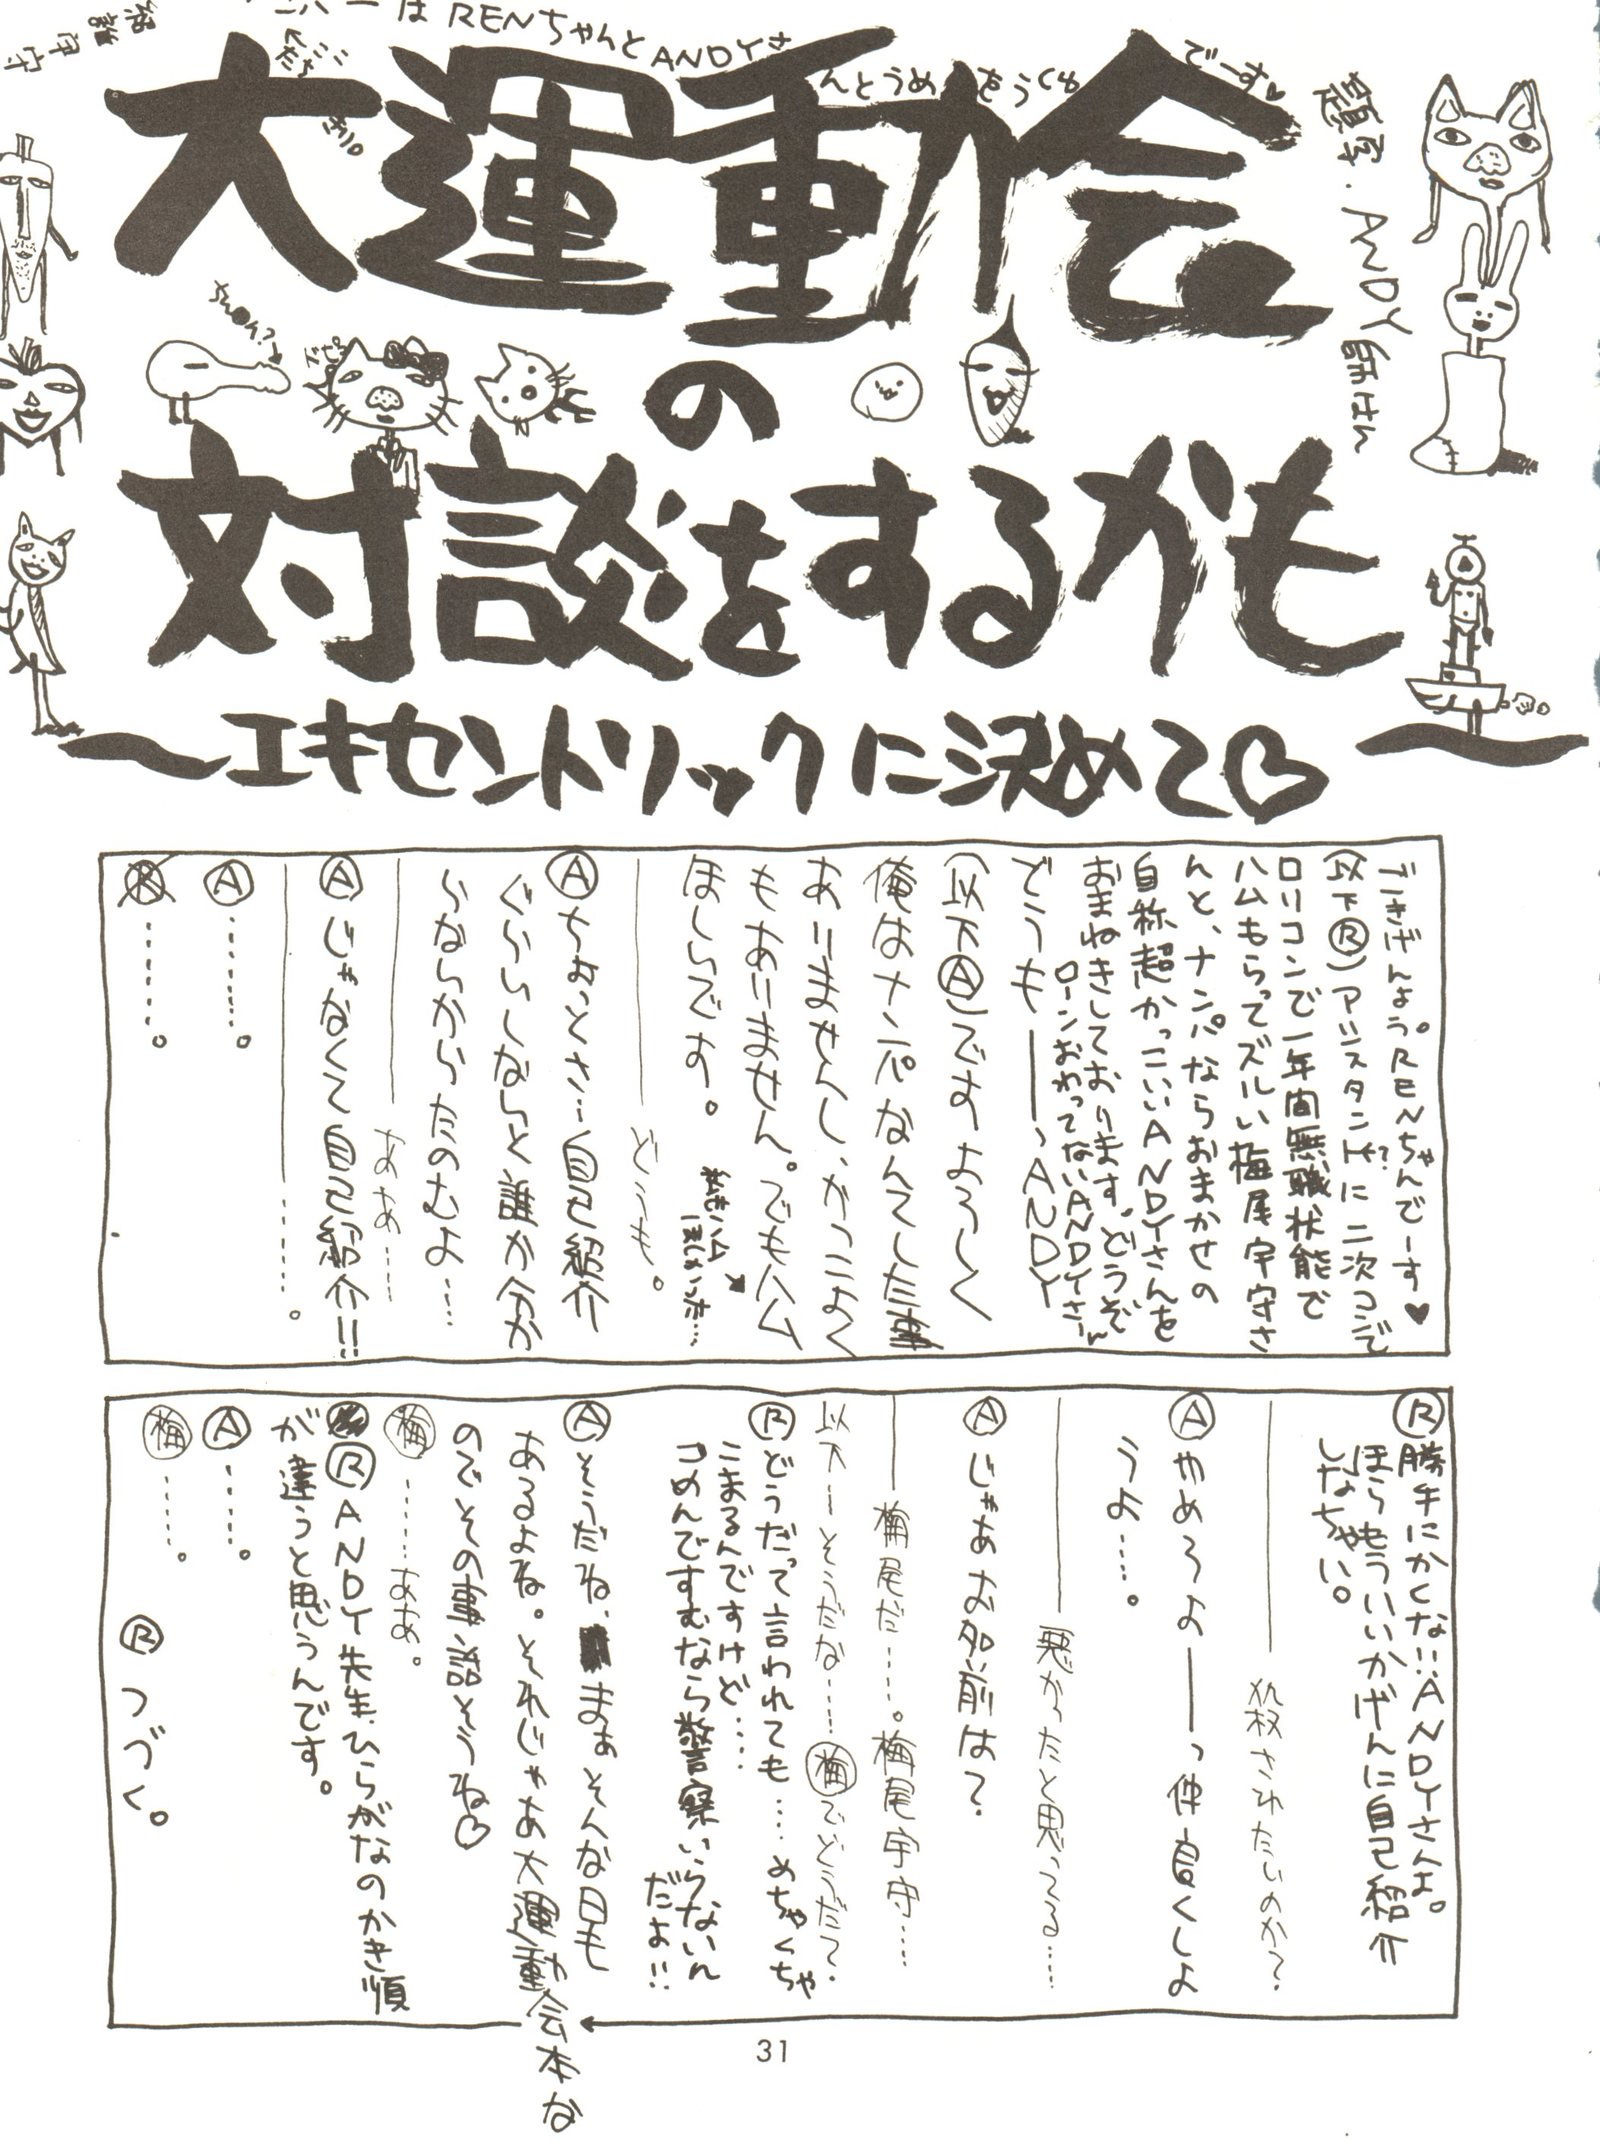 は RENちゃんとANDYさ
んとうめ
でーす♥
大運動会
の
対談をするかも
〜エキセントリックに決めて♡〜
題字・ANDY
ごきげんよう。RENちゃんでーす♥
(以下Ⓡ)アシスタントに二次コンで
ロリコンで一年間無職状態で
ハムもらってズルい梅尾宇守さ
んと、ナンパならおまかせの
自称超かっこいいANDYさんを
おまねきしております。どうぞ
ローンおわってないANDYさーん
どうもーーーっANDY
(以下Ⓐ)ですよろしく
俺はナンパなんてした事
ありませんし、かっこよく
もありません。でもハム
ほしいです。
どうも。
Ⓐちょっとさ…自己紹介
ぐらいしないと誰か分か
らないからたのむよ……
ああ……
Ⓐじゃなくて自己紹介!!
………。
Ⓐ………。
………。
Ⓡ勝手にかくな!!ANDYさんよ。
ほらもういいかげんに自己紹介
しなちゃい。
殺されたいのか?
Ⓐやめろよーーーっ仲良くしよ
うよ……。
悪かったと思ってる……
Ⓐじゃあお名前は?
梅尾だ……。梅尾宇守……
以下…そうだな……㊢でどうだ?
Ⓡどうだって言われても…めちゃくちゃ
こまるんですけど……
つめんですむなら警察いらないん
だよ!!
Ⓐそうだね、まぁそんな日も
あるよね。それじゃあ大運動会本な
のでその事話そうね♡
梅……ああ。
ⓇANDY先生、ひらがなのかき順
が違うと思うんです。
Ⓐ……。
梅……。
Ⓡつづく。
31